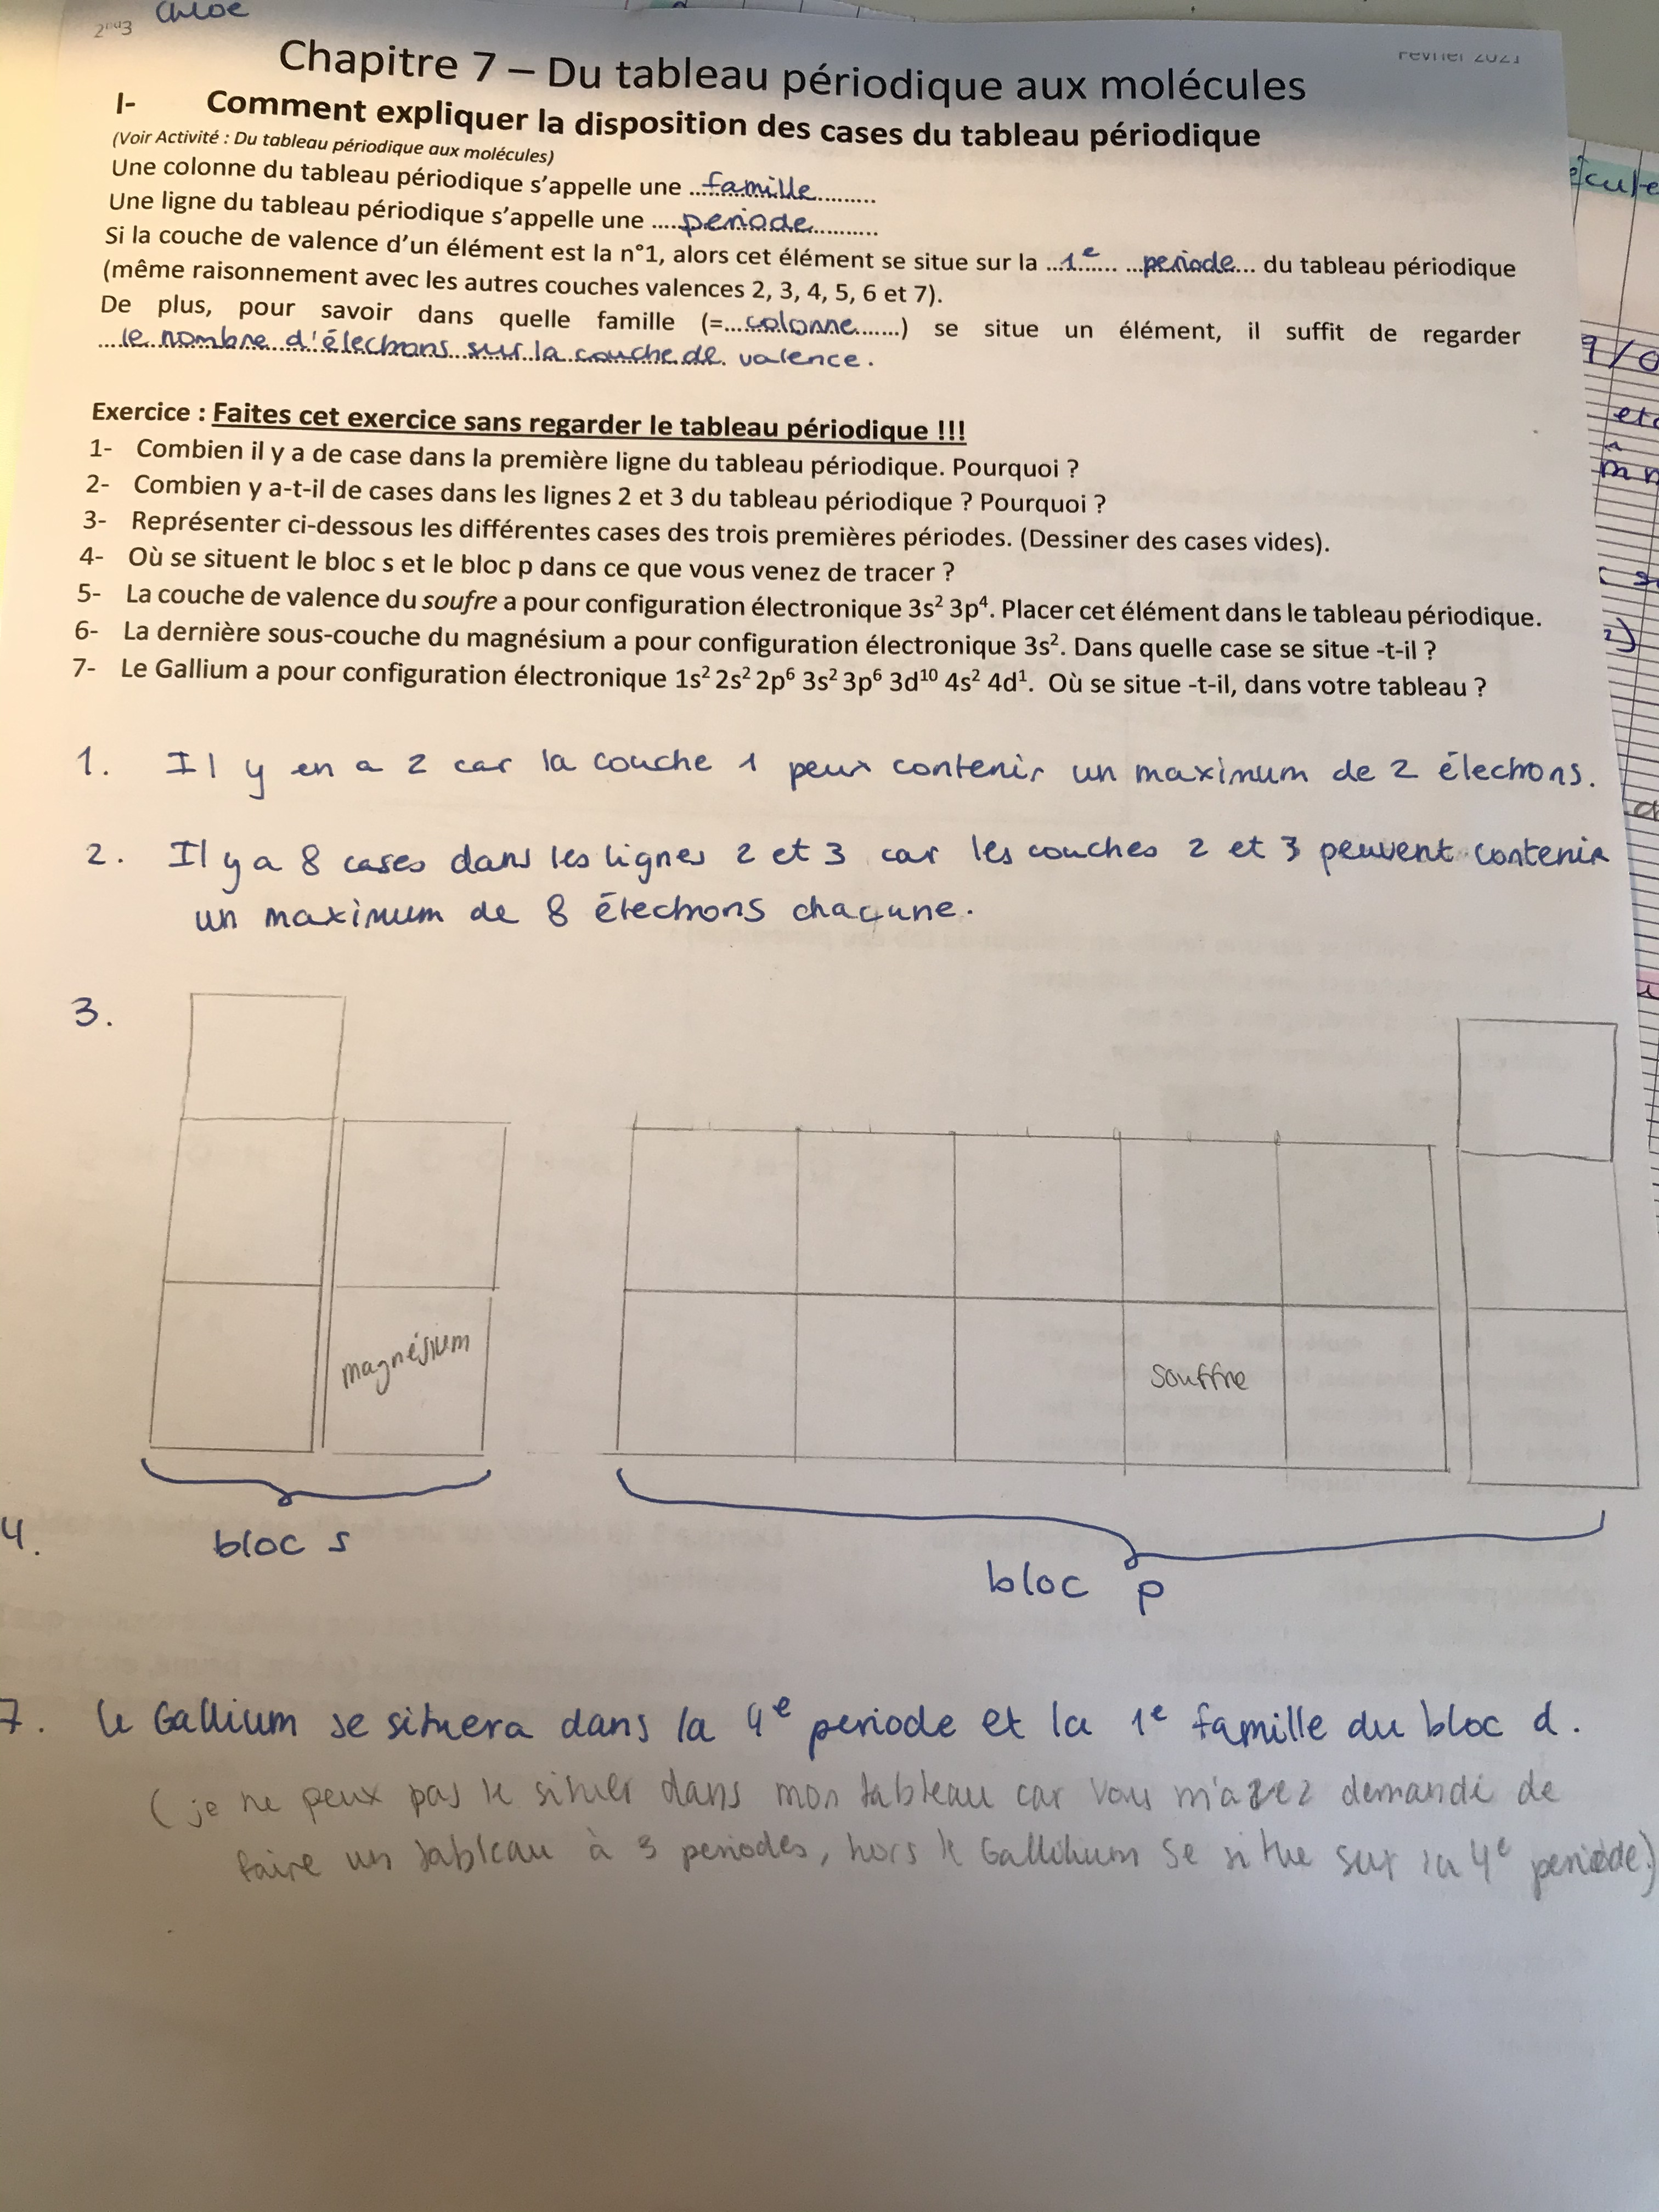 2nd3 Chloe
Février 2021
Chapitre 7 – Du tableau périodique aux molécules
I- Comment expliquer la disposition des cases du tableau périodique
(Voir Activité : Du tableau périodique aux molécules)
Une colonne du tableau périodique s'appelle une ...famille...
Une ligne du tableau périodique s'appelle une ...periode...
Si la couche de valence d'un élément est la n°1, alors cet élément se situe sur la ...1e... ...periode... du tableau périodique
(même raisonnement avec les autres couches valences 2, 3, 4, 5, 6 et 7).
De plus, pour savoir dans quelle famille (=...colonne...) se situe un élément, il suffit de regarder
...le nombre d'électrons sur la couche de valence.
Exercice : Faites cet exercice sans regarder le tableau périodique !!!
1- Combien il y a de case dans la première ligne du tableau périodique. Pourquoi ?
2- Combien y a-t-il de cases dans les lignes 2 et 3 du tableau périodique ? Pourquoi ?
3- Représenter ci-dessous les différentes cases des trois premières périodes. (Dessiner des cases vides).
4- Où se situent le bloc s et le bloc p dans ce que vous venez de tracer ?
5- La couche de valence du soufre a pour configuration électronique 3s² 3p⁴. Placer cet élément dans le tableau périodique.
6- La dernière sous-couche du magnésium a pour configuration électronique 3s². Dans quelle case se situe -t-il ?
7- Le Gallium a pour configuration électronique 1s² 2s² 2p⁶ 3s² 3p⁶ 3d¹⁰ 4s² 4d¹. Où se situe -t-il, dans votre tableau ?
1. Il y en a 2 car la couche 1 peux contenir un maximum de 2 électrons.
2. Il y a 8 cases dans les lignes 2 et 3 car les couches 2 et 3 peuvent contenir
un maximum de 8 électrons chacune.
3.
magnésium
souffre
4.
bloc s
bloc p
7. Le Gallium se situera dans la 4e periode et la 1e famille du bloc d.
(je ne peux pas le situer dans mon tableau car vous m'avez demandé de
faire un tableau à 3 periodes, hors le Gallilium se situe sur la 4e periode)